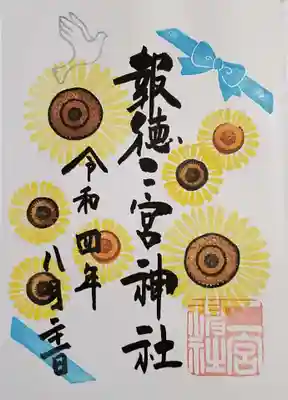 報徳二宮神社
令和四年八月
二宮
神社